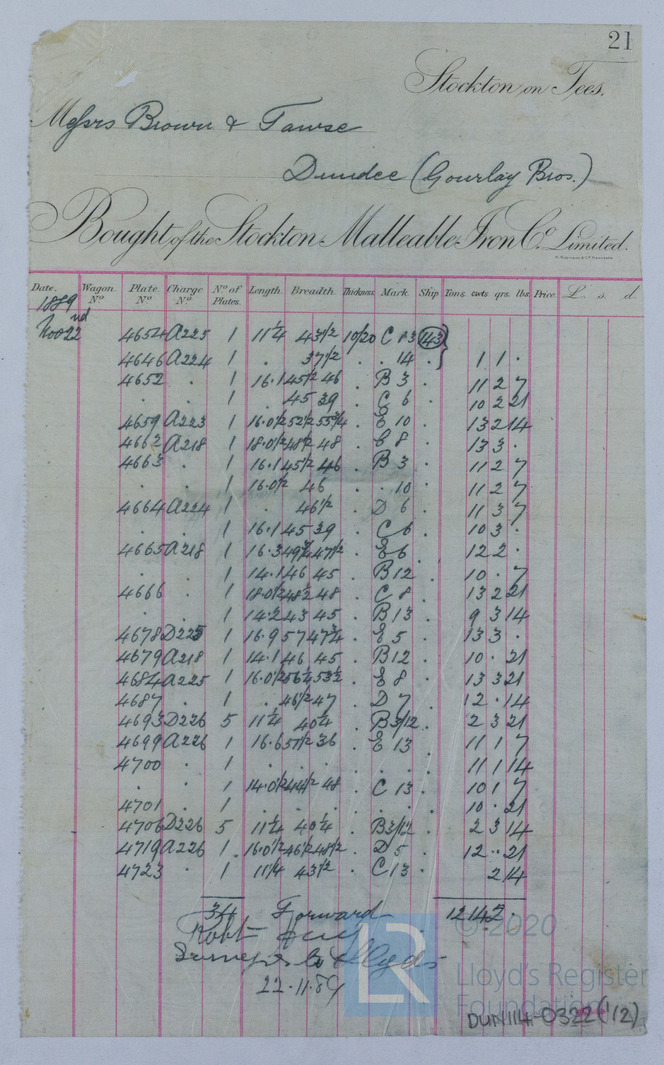 21
Stockton on Tees,
Messrs Brown & Tawse
Dundee (Gourlay Bros.)
Bought of the Stockton Malleable Iron Co. Limited.
Date. Wagon No Plate. No Charge No No of Plates. Length Breadth Thickness Mark. Ship Tons cwts qrs. lbs Price £ s. d
1889
Nov 22nd 4654 A225 1 11 1/4 43 1/2 10/20 C 13 43
4646 A224 1 . 37 1/2 . 14 . 1 1 .
4652 . 1 16.1 45 1/2 46 B 3 . 11 2 7
. . 1 . 45 39 C 6 . 10 2 21
4659 A223 1 16.0 1/2 52 1/2 55 3/4 E 10 . 13 2 14
4662 A218 1 18.0 1/2 48 1/2 48 C 8 . 13 3 .
4663 . 1 16.1 45 1/2 46 B 3 . 11 2 7
. . 1 16.0 1/2 46 . 10 . 11 2 7
4664 A224 1 . 46 1/2 D 6 . 11 3 7
. . 1 16.1 45 39 C 6 . 10 3 .
4665 A218 1 16.3 47 1/2 E 6 . 12 2 .
. . 1 14.1 46 45 B 12 . 10 . 7
4666 . 1 18.0 1/2 48 1/2 48 C 8 . 13 2 21
. . 1 14.2 43 45 B 13 . 9 3 14
4678 D225 1 16.9 57 47 1/4 E 5 . 13 3 .
4679 A218 1 14.1 46 45 B 12 . 10 . 21
4684 A225 1 16.0 1/2 56 1/2 53 1/2 E 8 . 13 3 21
4687 . 1 . 46 1/2 47 D 7 . 12 . 14
4693 D226 5 11 1/4 40 1/4 B 3/12 . 2 3 21
4699 A226 1 16.6 51 1/2 36 E 13 . 11 1 7
4700 . 1 . . . . . 11 1 14
. . 1 14.0 1/2 44 1/2 48 C 13 . 10 1 7
4701 . 1 . . . . . 10 . 21
4706 D226 5 11 1/4 40 1/4 B 3/12 . 2 3 14
4719 A226 1 16.0 1/2 46 1/2 48 1/2 D 5 . 12 . 21
4723 . 1 11 1/4 43 1/2 C 13 . 2 14
34 Forward 12 14 2 .
Robt
Surveyor to Lloyds
22.11.89
© 2020
Lloyd's Register
Foundation
LR
DUN114-0322 (1/2)